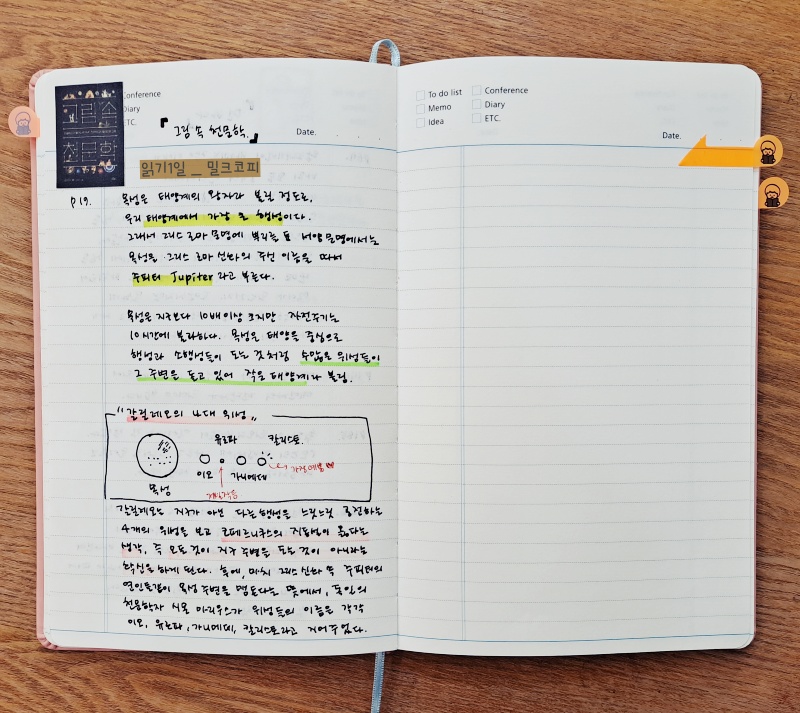 그림 속
천문학
Conference
Diary
ETC.
『그림 속 천문학』
Date.
읽기1일 _ 밀크커피
P 19.
목성은 태양계의 왕자라 불릴 정도로,
우리 태양계에서 가장 큰 행성이다.
그래서 그리스 로마 문명에 뿌리를 둔 서양 문명에서는
목성을 그리스 로마 신화의 주신 이름을 따서
주피터 Jupiter 라고 부른다.
목성은 지구보다 10배 이상 크지만 자전주기는
10시간에 불과하다. 목성은 태양을 중심으로
행성과 소행성들이 도는 것처럼 수많은 위성들이
그 주변을 돌고 있어 작은 태양계라 불림.
"갈릴레오의 4대 위성"
유로파 칼리스토.
이오 가니메데
가장예쁨
목성
제일작음
갈릴레오는 지구가 아닌 다른행성을 공전하는
4개의 위성을 보고 코페르니쿠스의 지동설이 옳다는
생각, 즉 모든 것이 지구 주변을 도는 것이 아니라는
확신을 하게 된다. 후에, 마치 그리스신화 속 주피터의
연인들같이 목성 주변을 맴돈다는 뜻에서, 독일의
천문학자 시몬 마리우스가 위성들의 이름을 각각
이오, 유로파, 가니메데, 칼리스토라고 지어주었다.
To do list
Conference
Memo
Diary
Idea
ETC.
Date.